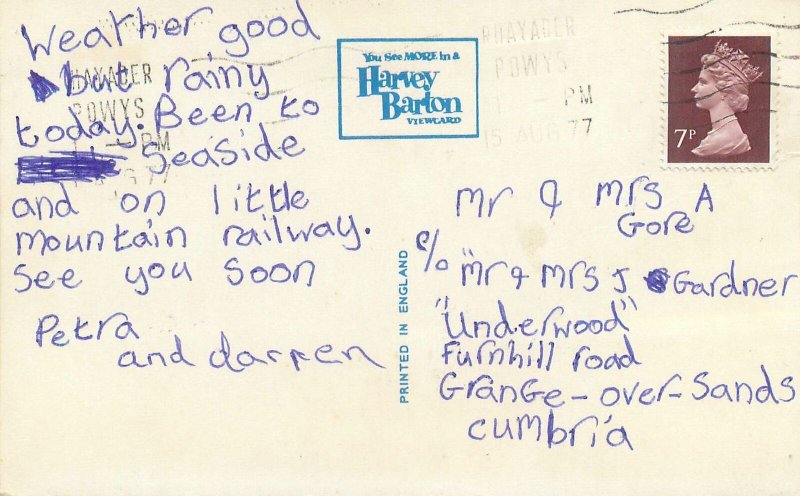 Weather good
but rainy
today. Been to
Seaside
and on little
mountain railway.
See you soon
Petra
and darren
RHAYADER
POWYS
PM
15 AUG 77
You See MORE in a
Harvey
Barton
VIEWCARD
PRINTED IN ENGLAND
RHAYADER
POWYS
1 - PM
15 AUG 77
7P
Mr & Mrs A
Gore
c/o Mr & Mrs J Gardner
"Underwood"
Furnhill road
Grange-over-Sands
Cumbria